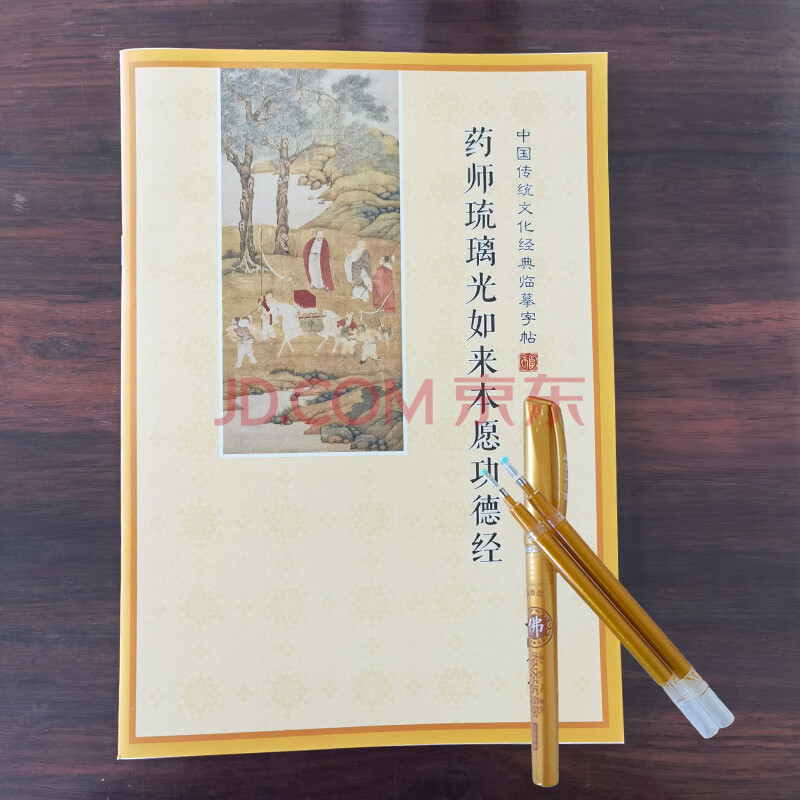 中国传统文化经典临摹字帖
药师琉璃光如来本愿功德经
JD.COM 京东
佛